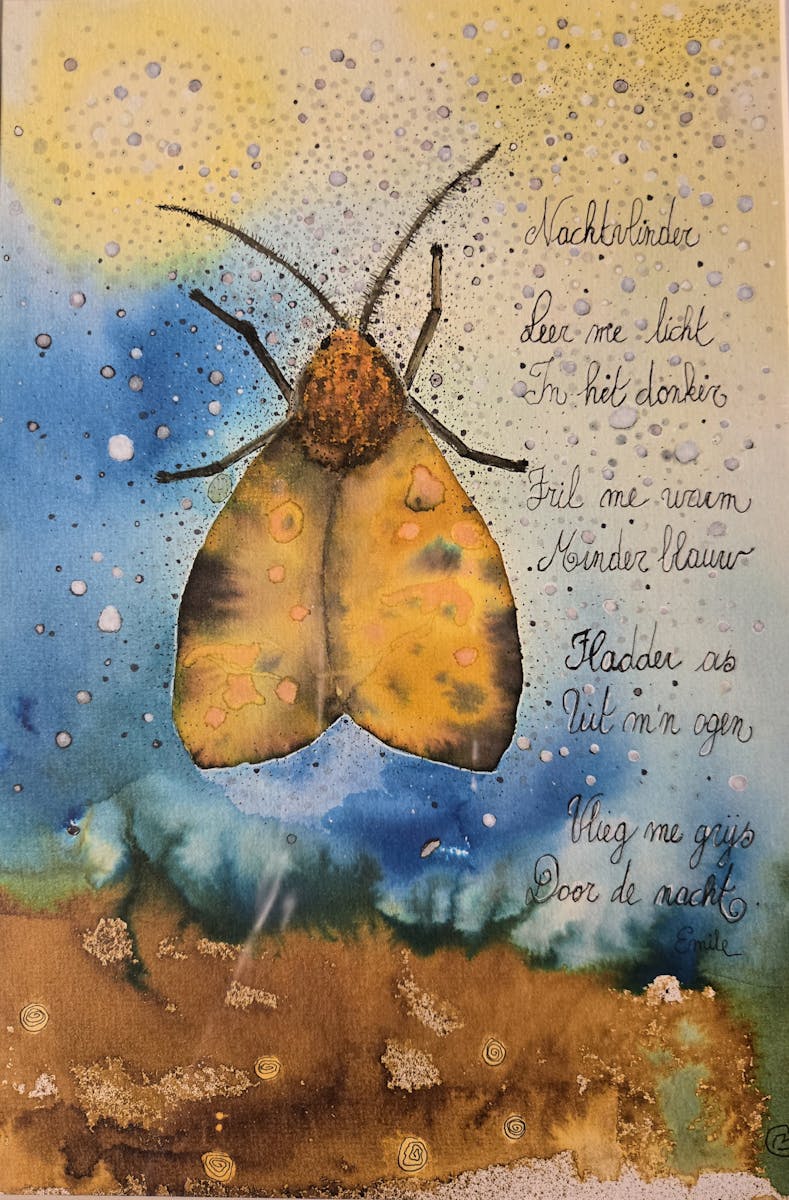 Nachtvlinder
Leer me licht
In het donker
Tril me warm
Minder blauw
Fladder as
Uit m'n ogen
Vlieg me grijs
Door de nacht.
Emile